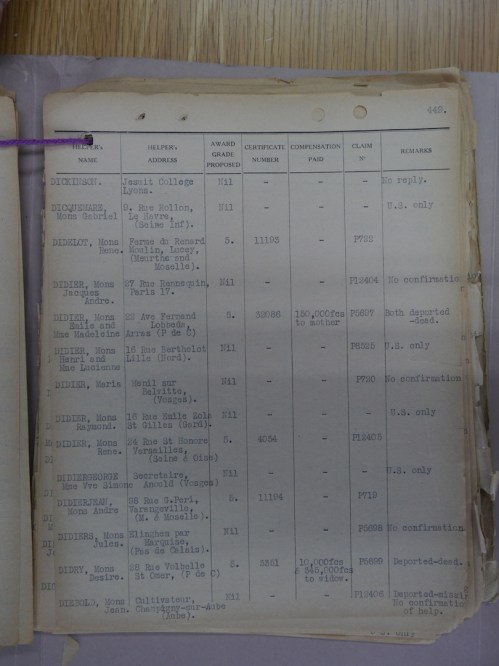 449.
HELPER's NAME HELPER's ADDRESS AWARD GRADE PROPOSED CERTIFICATE NUMBER COMPENSATION PAID CLAIM No REMARKS
DICKINSON. Jesuit College Nil - - - No reply.
Lyons.
DICQUEMARE, 9. Rue Rollon, Nil - - - U.S. only
Mons Gabriel Le Havre,
(Seine Inf).
DIDELOT, Mons Ferme du Renard 5. 11195 - F722
Rene. Moulin, Lucey,
(Meurthe and
Moselle).
DIDIER, Mons 27 Rue Nil - - F12404 No confirmation
Jacques Paris 17.
Andre.
DIDIER, Mons 22 Ave Fernand 5. 150,000fcs Both deported
Emile and Lobbeda, to mother -dead.
Mme Madeleine Arras (P de C)
DIDIER, Mons 16 Rue Berthelot Nil - - U.S. only
Henri and Lille (Nord).
Mme Lucienne
DIDIER, Maria Menil sur Nil - - F790 No confirmation
Belvitte,
(Vosges).
DIDIER, Mons 16 Rue Emile Zola Nil - - - U.S. only
Raymond. St Gilles (Gard).
DIDIER, Mons 24 Rue St Honore 5. 4024 - F12405
Rene. Versailles,
(Seine & Oise)
DIDIERGEORGE Secretaire, Nil - - - U.S. only
Mme Vve Simone Anould (Vosges)
DIDIERJEAN, 98 Rue G.Peri, 5. 11194 - F719
Mons Andre Varangeville,
(M. & Moselle).
DIDIERS, Mons Elinghen par Nil - - No confirmation
Jules. Marquise,
(Pas de Calais).
DIDRY, Mons 28 Rue Valbelle 5. 10,000fcs Deported-dead.
Desire. St Omer, (P de C) & 340,000fcs
to widow.
DIEBOLD, Mons Cultivateur, Nil - - F12406 Deported-missi
Jean. Champigny-sur-Aube No confirmation
(Aube). of help.